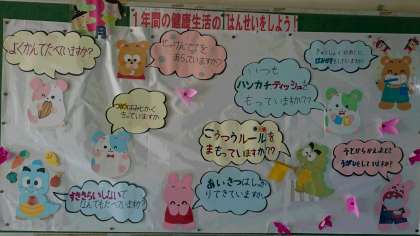 3
月
1年間の健康生活のはんせいをしよう!
よくかんでたべていますか?
せっけんで手を
あらっていますか?
はみがきを
していますか?
いつも
ハンカチ・ティッシュを
もっていますか??
つめはみじかく
きっていますか
こうつうルールを
まもっていますか??
うがいをしていますか?
すききらいしないで
なんでもたべていますか?
あいさつはしっか
りできていますか